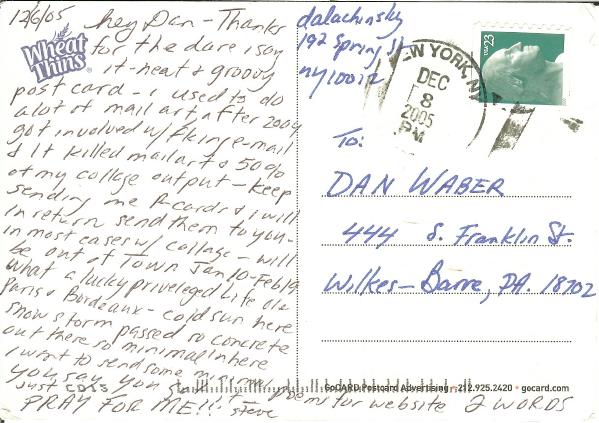 12/6/05 hey Dan - Thanks
for the dare i say
it - neat & groovy
post card - i used to do
a lot of mail art, after 2004
got involved w/ fking e-mail
& it killed mail art & 50%
of my collage output - keep
sending me p-cards & i will
in return send them to you -
in most cases w/ collage - will
be out of Town Jan 10 - Feb 19
what a lucky priveleged life ole
Paris & Bordeaux - cold sun here
snow storm passed so concrete
out there so minimal in here
i want to send some
you say you
just poems for website 2 WORDS
PRAY FOR ME!!! steve
Wheat
Thins
dalachinsky
192 Spring St
ny 10012
NEW YORK, NY
DEC
8
2005
PM
USA 23
To:
DAN WABER
444 S. Franklin St.
Wilkes-Barre, PA. 18702
GoCARD Postcard Advertising • 212.925.2420 • gocard.com